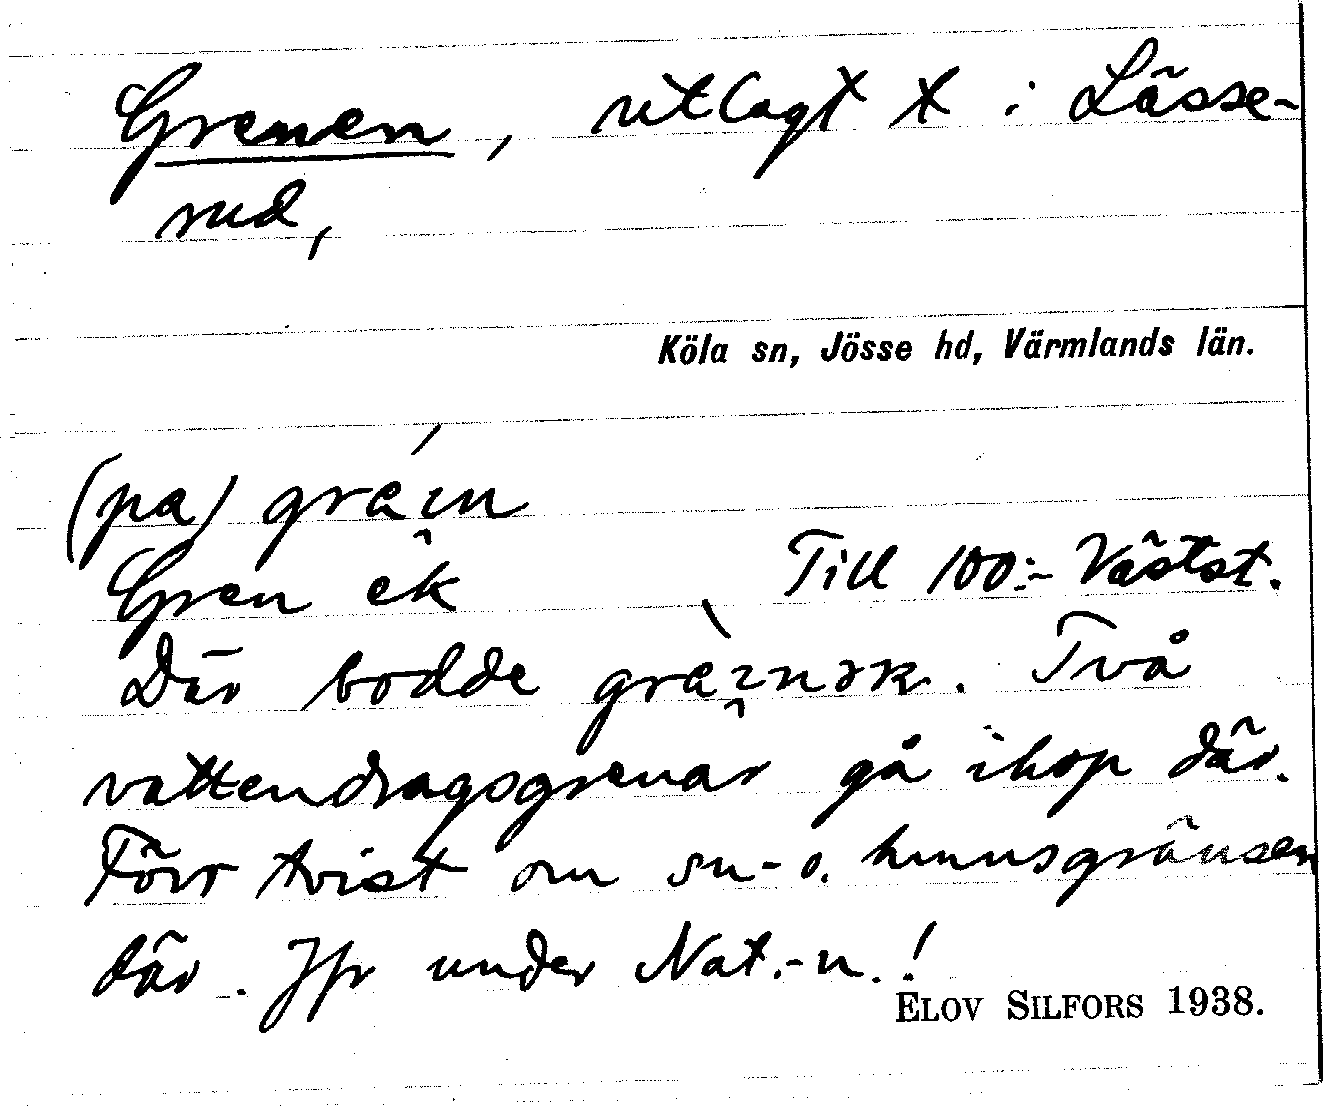 Grenen, utlagt t i Lässe-
rud,
Köla sn, Jösse hd, Värmlands län.
(pa)
Gren ek Till 100:- Västst.
Där bodde . Två
vattendragsgrenar gå ihop där.
Förr tvist om sn- o. hmnsgränsen
där. Jfr under Nat.-n.!
ELOV SILFORS 1938.